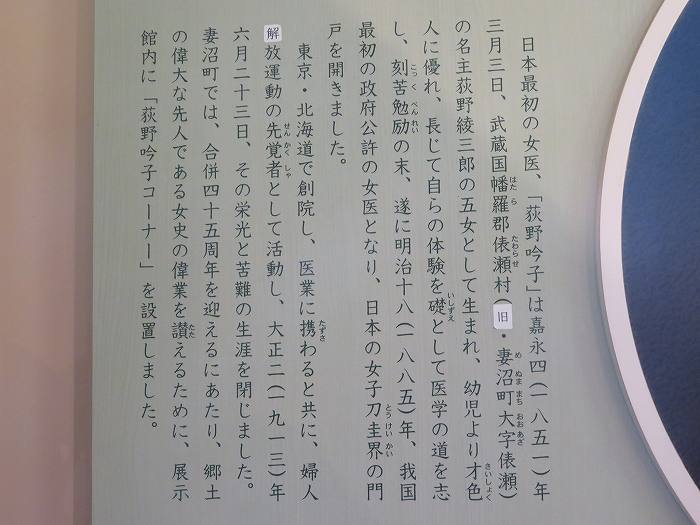 日本最初の女医、「荻野吟子」は嘉永四(一八五一)年
三月三日、武蔵国幡羅郡俵瀬村(旧・妻沼町大字俵瀬)
の名主荻野綾三郎の五女として生まれ、幼児より才色
人に優れ、長じて自らの体験を礎として医学の道を志
し、刻苦勉励の末、遂に明治十八(一八八五)年、我国
最初の政府公許の女医となり、日本の女子刀圭界の門
戸を開きました。
東京・北海道で創院し、医業に携わると共に、婦人
解放運動の先覚者として活動し、大正二(一九一三)年
六月二十三日、その栄光と苦難の生涯を閉じました。
妻沼町では、合併四十五周年を迎えるにあたり、郷土
の偉大な先人である女史の偉業を讃えるために、展示
館内に「荻野吟子コーナー」を設置しました。